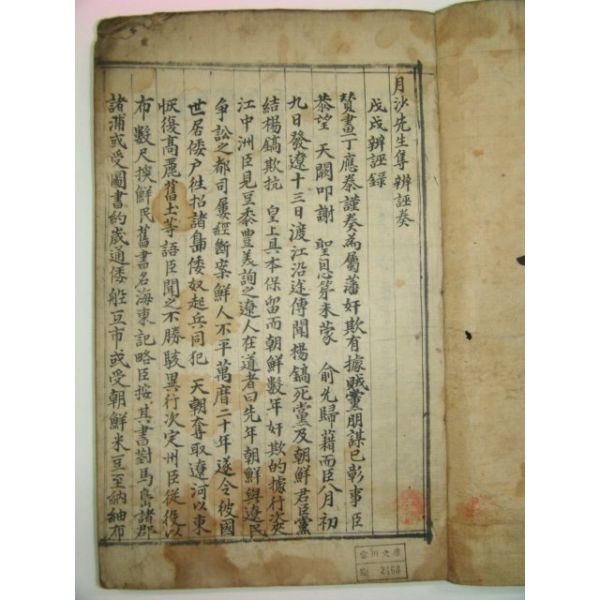 月沙先生集辨誣奏
戊戌辨誣錄
贊畫丁應泰謹奏為屬藩奸欺有據賊黨朋謀已彰事臣
恭望 天闕叩謝 聖恩第未蒙 俞允歸藉而臣八月初
九日發遼十三日渡江沿途傳聞楊鎬死黨及朝鮮君臣黨
結楊鎬欺抗 皇上具本保留而朝鮮數年奸欺的據行次夾
江中洲臣見豆黍豐美詢之遼人在道者曰先年朝鮮與遼民
爭訟之都司屢經斷案鮮人不平萬曆二十年遂令彼國
世居倭戶往招諸島倭奴起兵同犯 天朝奪取遼河以東
恢復高麗舊土等語臣聞之不勝駭異行次定州臣從役以
布數尺換鮮民舊書名海東記略臣按其書對馬島諸郡
諸浦或受圖書約歲通倭舡互市或受朝鮮米豆至納紬布
2468